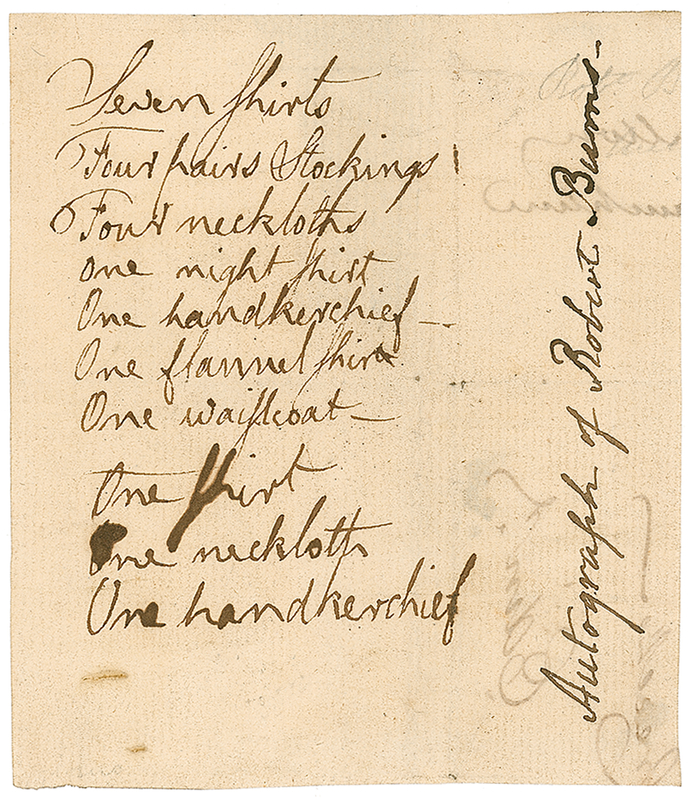 Seven shirts
Four pairs Stockings
Four neckloths
One night shirt
One handkerchief –
One flannel shirt
One waistcoat –
One shirt
One neckloth
One handkerchief
Autograph of Robert Burns –